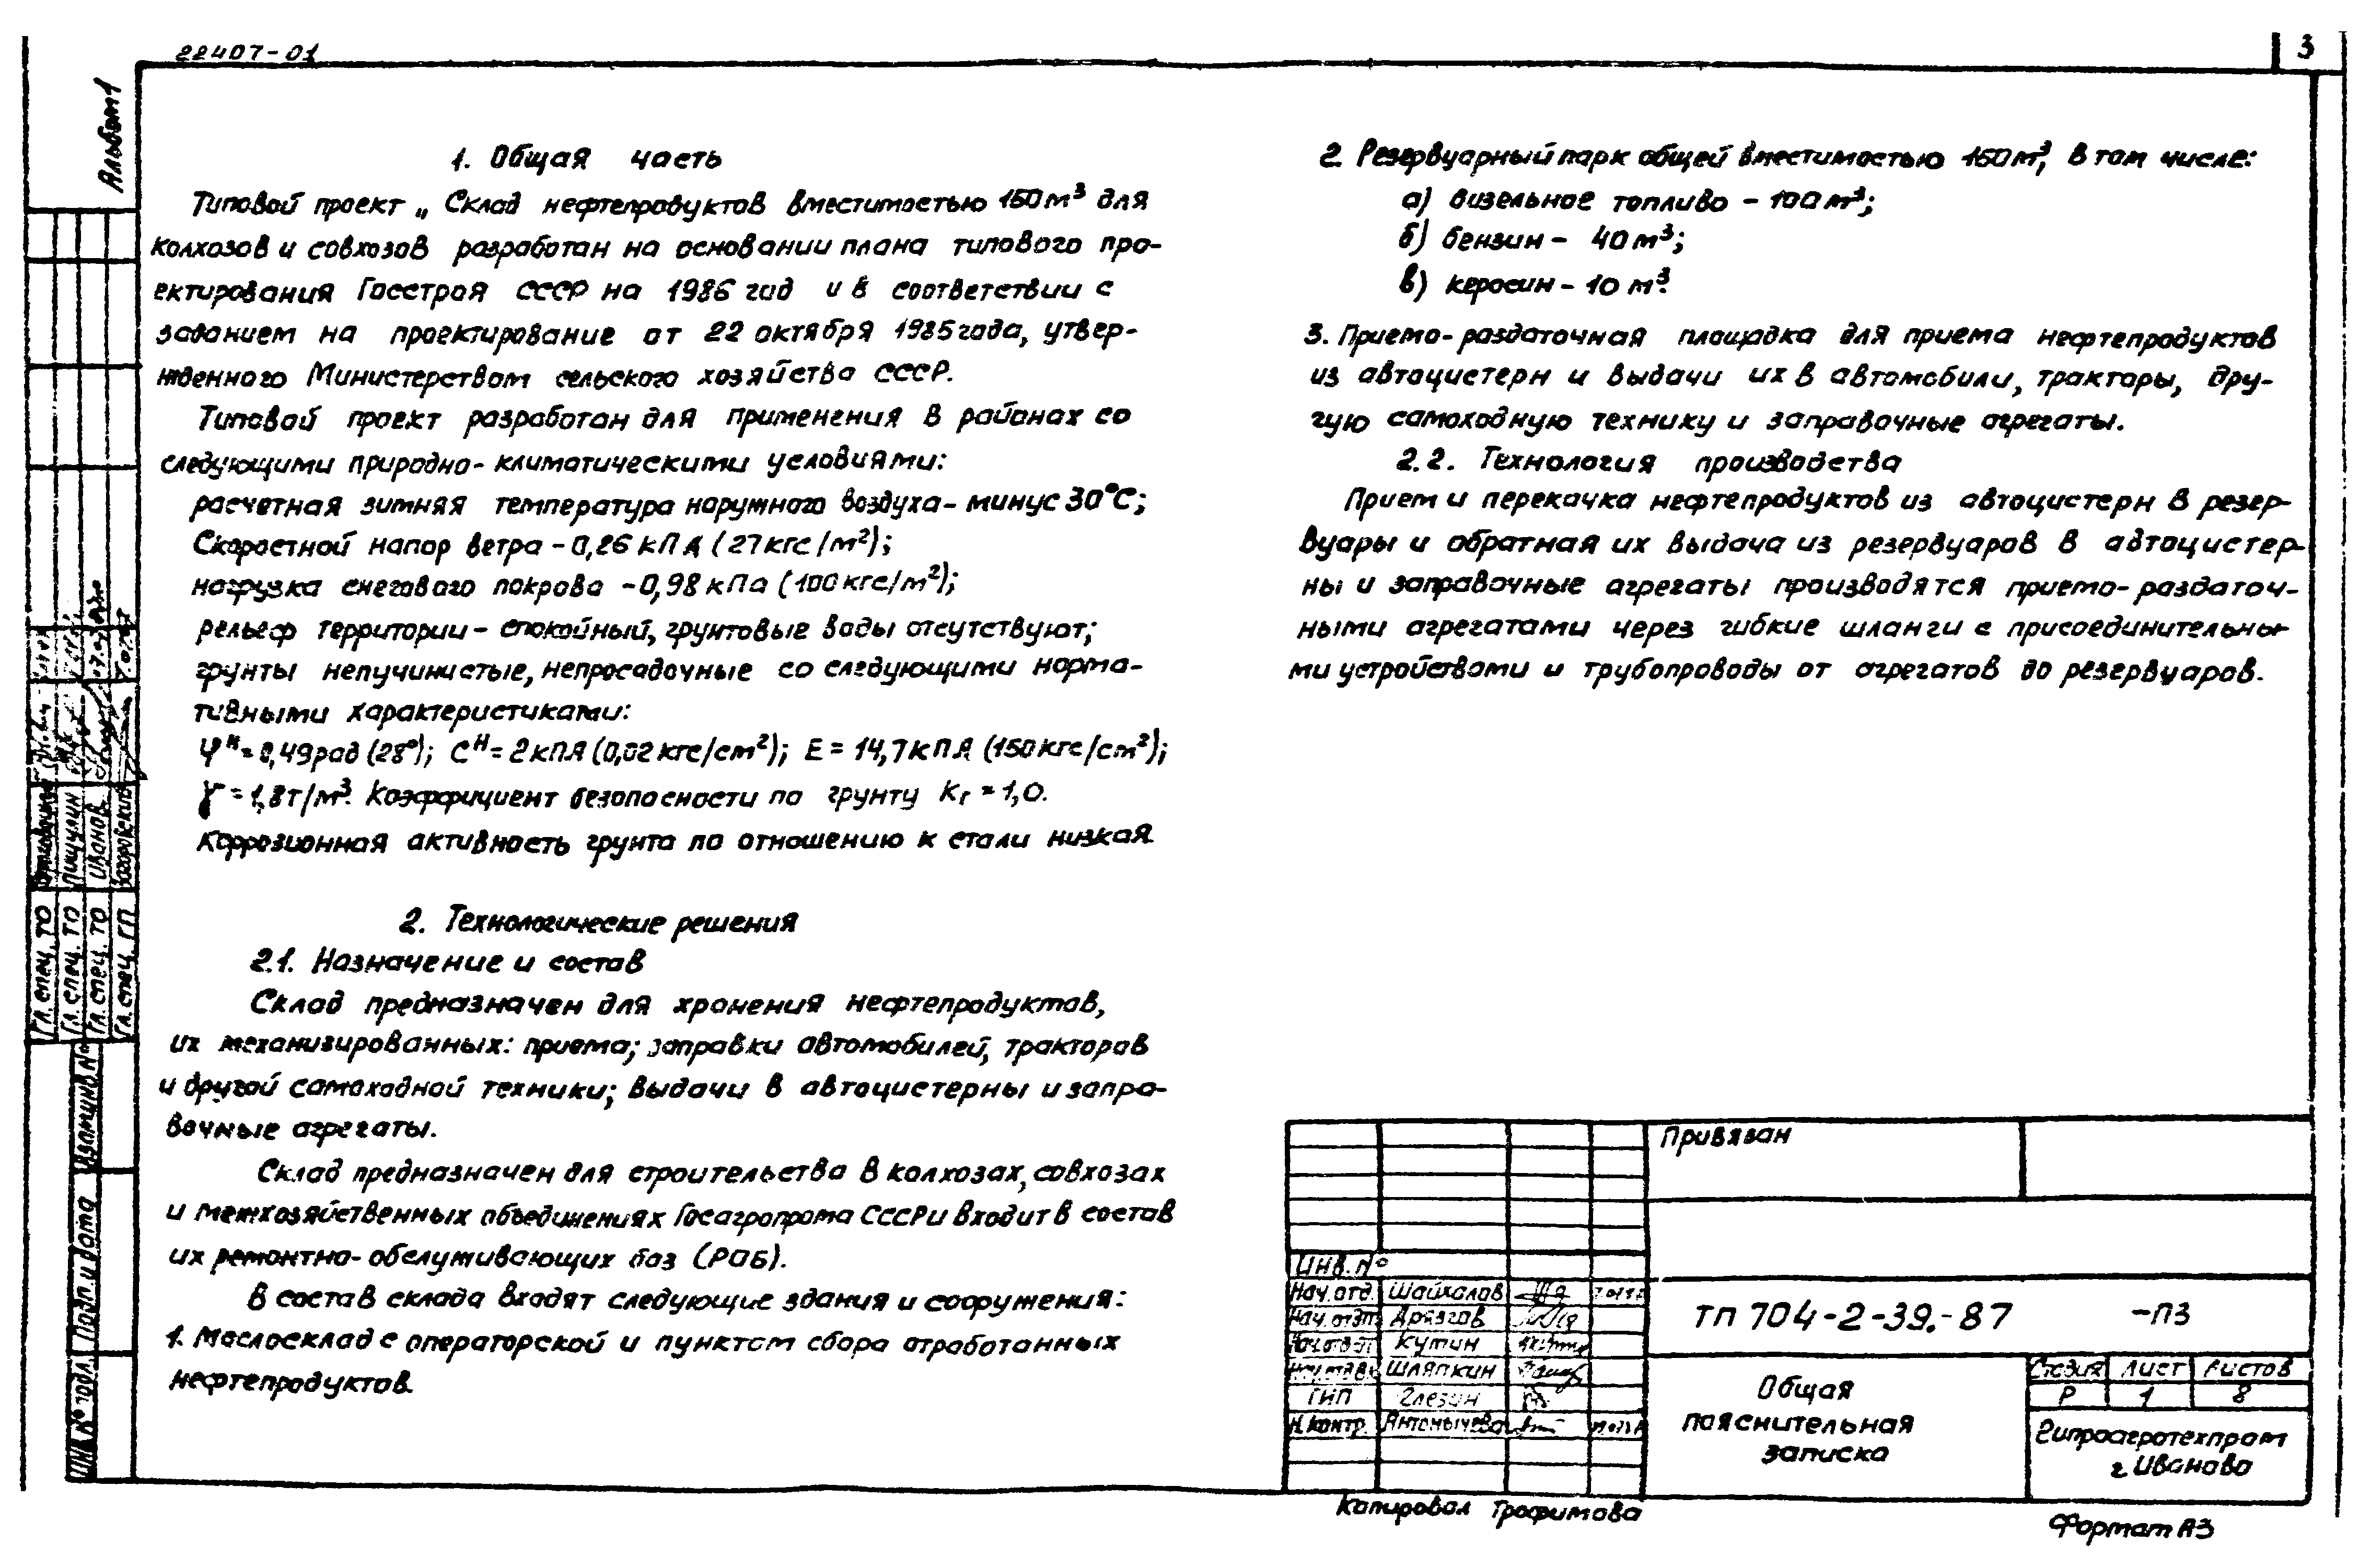 22407-01
3
Альбом 1
1. Общая часть
Типовой проект „Склад нефтепродуктов вместимостью 150 м³ для
колхозов и совхозов разработан на основании плана типового про-
ектирования Госстроя СССР на 1986 год и в соответствии с
заданием на проектирование от 22 октября 1985 года, утвер-
жденного Министерством сельского хозяйства СССР.
Типовой проект разработан для применения в районах со
следующими природно-климатическими условиями:
расчетная зимняя температура наружного воздуха - минус 30°С;
Скоростной напор ветра - 0,26 кПА (27 кгс/м²);
нагрузка снегового покрова - 0,98 кПа (100 кгс/м²);
рельеф территории - спокойный, грунтовые воды отсутствуют;
грунты непучинистые, непросадочные со следующими норма-
тивными характеристиками:
φᴴ = 0,49 рад (28°); Сᴴ = 2 кПА (0,02 кгс/см²); Е = 14,7 кПА (150 кгс/см²);
γ = 1,8 т/м³. Коэффициент безопасности по грунту Кг = 1,0.
Коррозионная активность грунта по отношению к стали низкая.
2. Технологические решения
2.1. Назначение и состав
Склад предназначен для хранения нефтепродуктов,
их механизированных: приема; заправки автомобилей, тракторов
и другой самоходной техники; выдачи в автоцистерны и запра-
вочные агрегаты.
Склад предназначен для строительства в колхозах, совхозах
и межхозяйственных объединениях Госагропрома СССР и входит в состав
их ремонтно-обслуживающих баз (РОБ).
В состав склада входят следующие здания и сооружения:
1. Маслосклад с операторской и пунктом сбора отработанных
нефтепродуктов.
2. Резервуарный парк общей вместимостью 150 м³, в том числе:
а) дизельное топливо - 100 м³;
б) бензин - 40 м³;
в) керосин - 10 м³.
3. Приемо-раздаточная площадка для приема нефтепродуктов
из автоцистерн и выдачи их в автомобили, тракторы, дру-
гую самоходную технику и заправочные агрегаты.
2.2. Технология производства
Прием и перекачка нефтепродуктов из автоцистерн в резер-
вуары и обратная их выдача из резервуаров в автоцистер-
ны и заправочные агрегаты производятся приемо-раздаточ-
ными агрегатами через гибкие шланги с присоединительны-
ми устройствами и трубопроводы от агрегатов до резервуаров.
Гл. спец. ТО
Гл. спец. ТО Пикулин
Гл. спец. ТО Иванов
Гл. спец. ГП
Взам. инв. №
Подп. и дата
Инв. № подл.
Привязан
Инв. №
Нач. отд. Шайхалов
Нач. отд. Дрязгов
Нач. отд. Кутин
Нач. отд. Шляпкин
ГИП Глезин
Н. контр. Антонычева
ТП 704-2-39.-87 -ПЗ
Общая
пояснительная
записка
Стадия Лист Листов
Р 1 8
Гипроагротехпром
г. Иваново
Копировал Трофимова
Формат А3